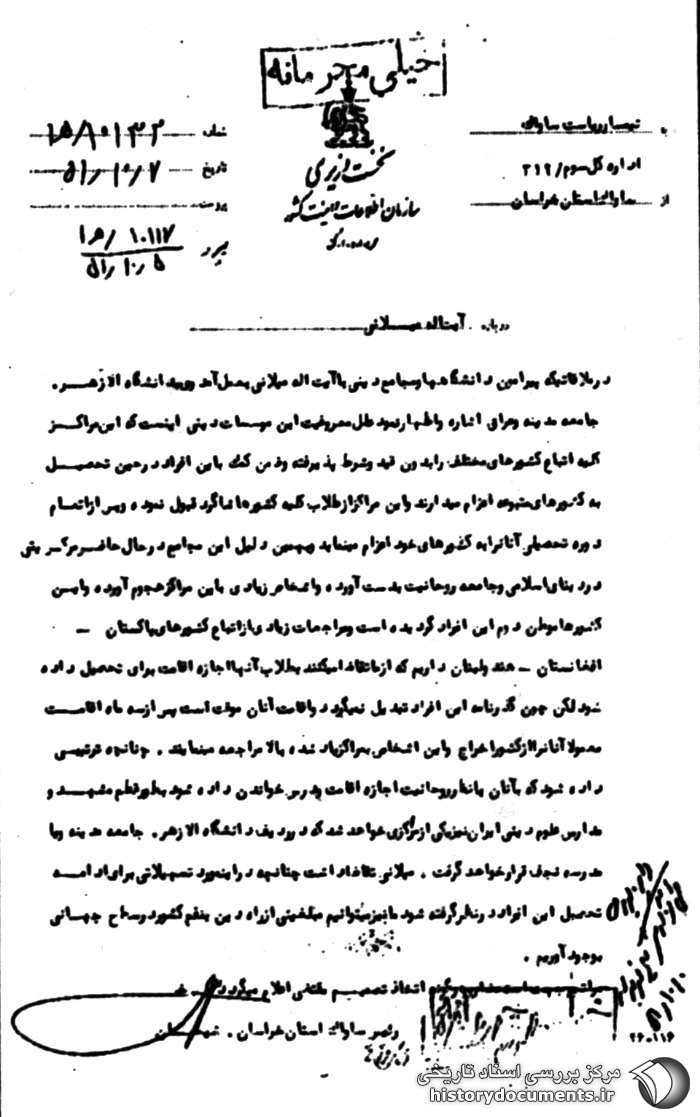 خیلی محرمانه
نخست وزیری
سازمان اطلاعات و امنیت کشور
به تیمسار ریاست ساواک
اداره کل سوم/ ۳۱۲
از ساواک استان خراسان
شماره ۱۵/۱۰۱۳۲
تاریخ ۵۱٫۱۰٫۷
پیوست
پیرو ۱۰۱۱۷ /۱۵
۵۱٫۱۰٫۵
درباره آیت اله میلانی
در ملاقاتیکه پیرامون دانشگاهها و مجامع دینی با آیت اله میلانی بعمل آمد وی به دانشگاه الازهر .
جامعه مدینه و عراق اشاره و اظهار نمود علل معروفیت این موسسات دینی اینست که این مراکز
کلیه اتباع کشورهای مختلف را بدون قید و شرط پذیرفته و ضمن کمک باین افراد در حین تحصیل
به کشورهای متبوعه اعزام میدارند و این مراکز از طلاب کلیه کشورها شاگرد قبول نموده و پس از اتمام
دوره تحصیلی آنانرا به کشورهای خود اعزام مینماید وبهمین دلیل این مجامع در حال حاضر مرکزیتی
در دنیای اسلامی و جامعه روحانیت بدست آورده و اشخاص زیادی باین مراکز هجوم آورده و این
کشورها موطن دوم این افراد گردیده است و مراجعات زیادی از اتباع کشورهای پاکستان -
افغانستان - هند و لبنان داریم که از ما تقاضا میکنند بطلاب آنها اجازه اقامت برای تحصیل داده
شود لکن چون گذرنامه این افراد تبدیل نمیگردد و اقامت آنان موقت است پس از سه ماه اقامت
معمولا آنانرا از کشور اخراج و این اشخاص بمراکز یاد شده بالا مراجعه مینمایند . چنانچه ترتیبی
داده شود که بآنان با نظر روحانیت اجازه اقامت و درس خواندن داده شود بطور قطع مشهد و
مدارس علوم دینی ایران نیز یکی از مراکزی خواهد شد که در ردیف دانشگاه الازهر . جامعه مدینه و یا
مدرسه نجف قرار خواهد گرفت . میلانی تقاضا داشت چنانچه در اینمورد تسهیلاتی برای ادامه
تحصیل این افراد در نظر گرفته شود ما نیز میتوانیم مبلغینی از راه دین بنفع کشور در سطح جهانی
بوجود آوریم .
اتخاذ تصمیم مقتضی اعلام میگردد
رئیس ساواک استان خراسان .
۲۶-۱۱۶
مرکز بررسی اسناد تاریخی
historydocuments.ir